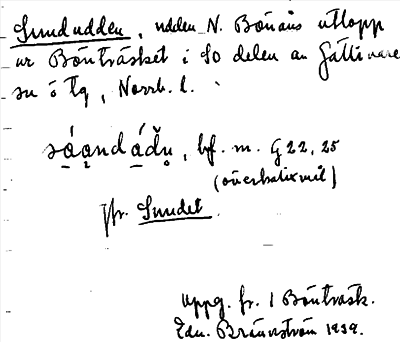 Sundudden, udden N. Bönåns utlopp
ur Böntråsket i SO delen av Gällivare
sn o tg, Norrb. l.
såandáďu, bf. m. G 22, 25
(överkalixmål)
Jfr. Sundet.
Uppg. fr. 1 Böntråsk.
Edv. Brännström 1939.